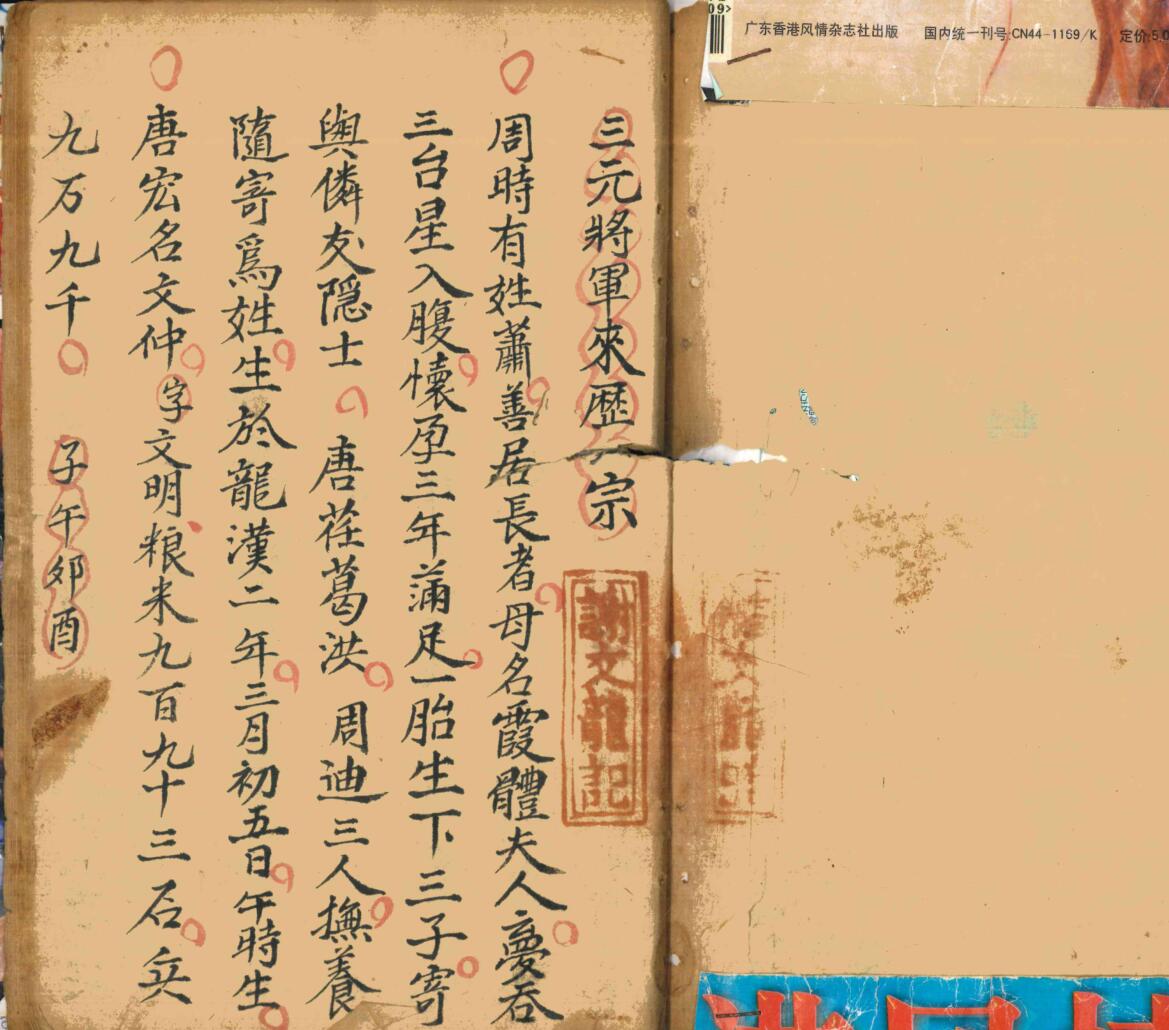 三元將軍來歷一宗
周時有姓蕭善居長者母名霞體夫人夢吞
三台星入腹懷孕三年滿足一胎生下三子寄
與憐友隱士 唐荏葛洪 周迪三人撫養
隨寄爲姓生於龍漢二年三月初五日午時生
唐宏名文仲字文明粮米九百九十三石兵
九万九千 子午夘酉
謝文龍記
09>
广东香港风情杂志社出版 国内统一刊号:CN44-1169/K 定价:5.0